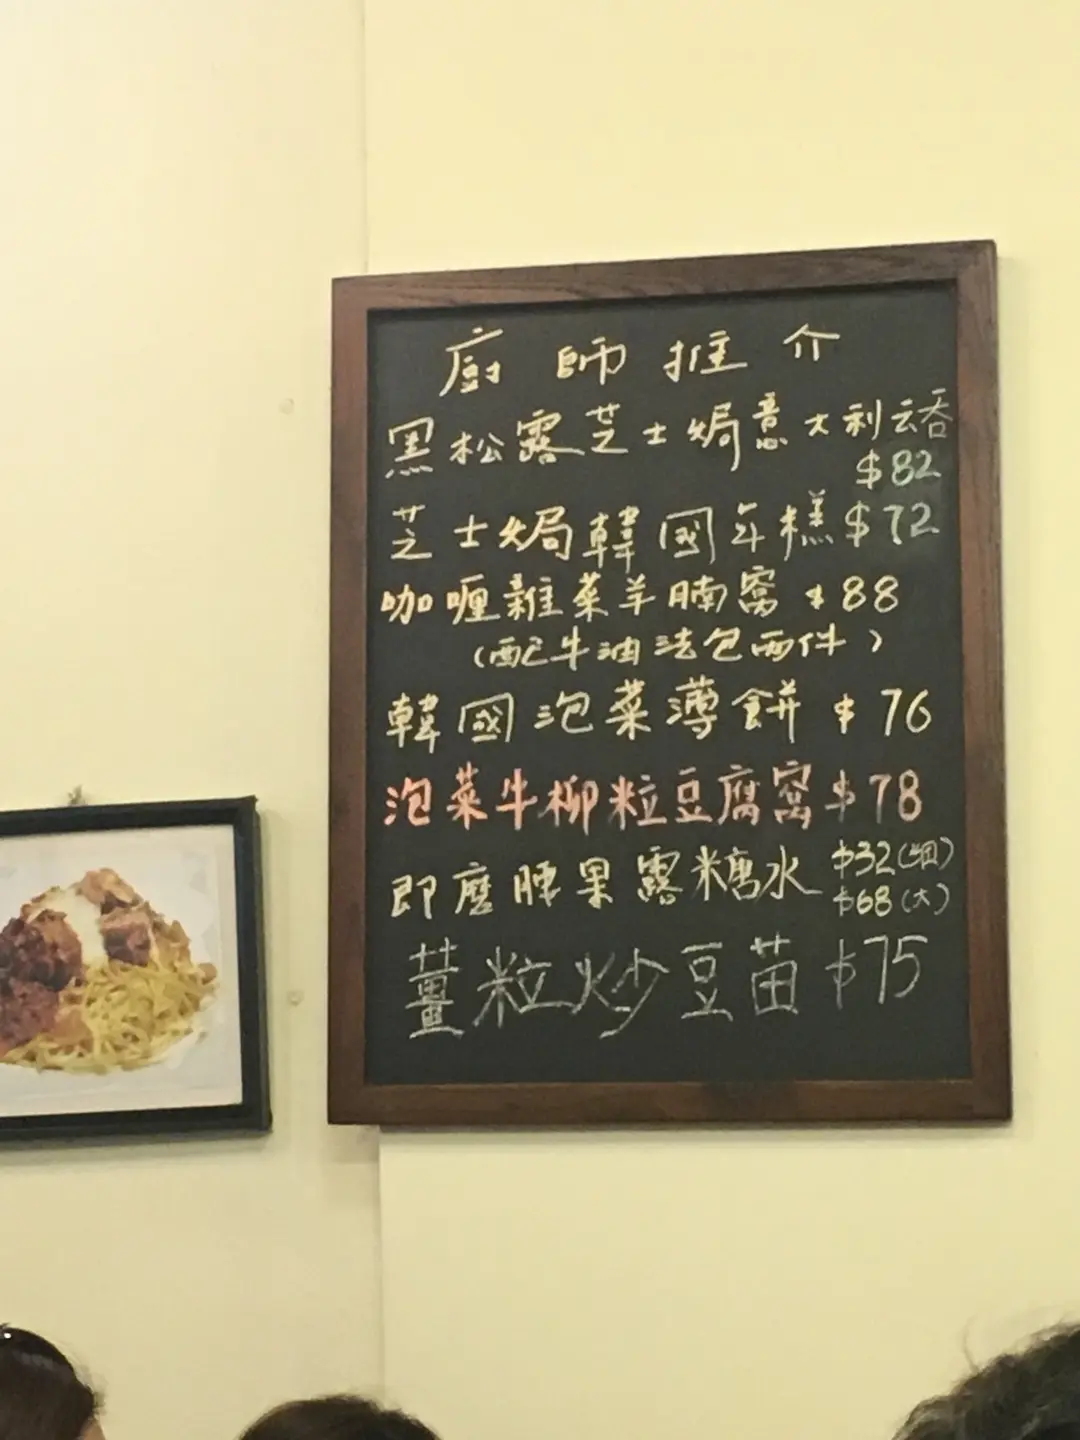 廚師推介
黑松露芝士焗意大利云吞
$82
芝士焗韓國年糕$72
咖喱雜菜羊腩窩 $88
(配牛油法包兩件)
韓國泡菜薄餅 $76
泡菜牛柳粒豆腐窩$78
即磨腰果露糖水 $32(細)
$68(大)
薑粒炒豆苗 $75